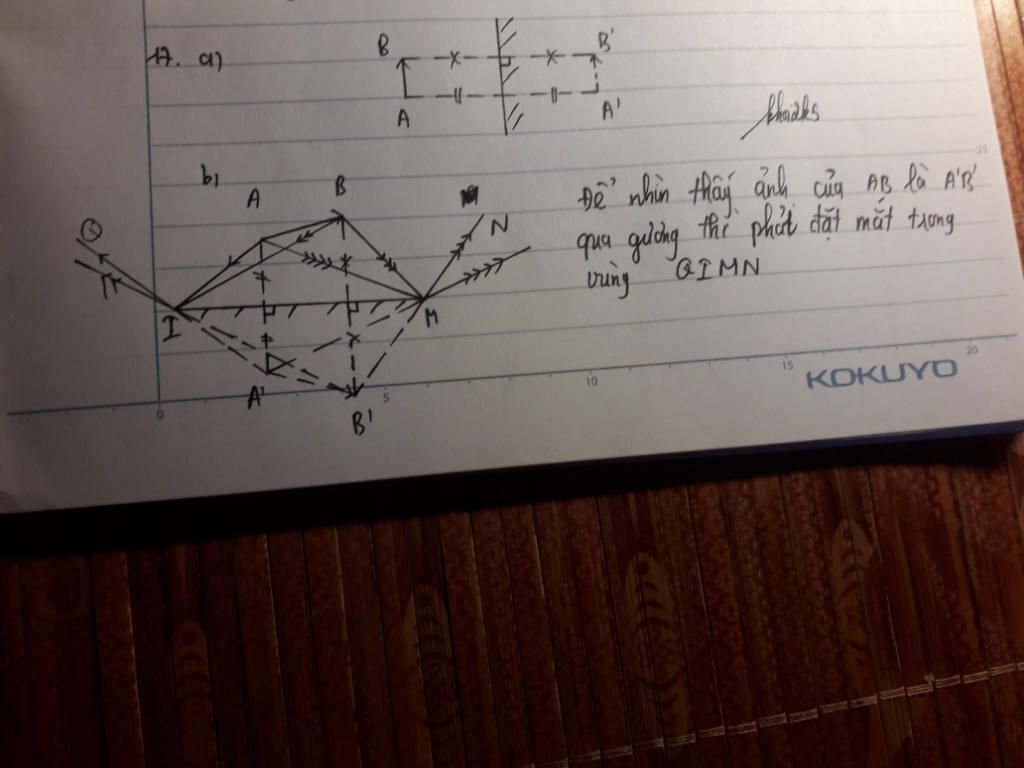 17. a)
B B'
A A'
khaizks
b)
A B N
Q
I M
A'
B'
Để nhìn thấy ảnh của AB là A'B'
qua gương thì phải đặt mắt trong
vùng QIMN
25
0 5 10 15 20
KOKUYO